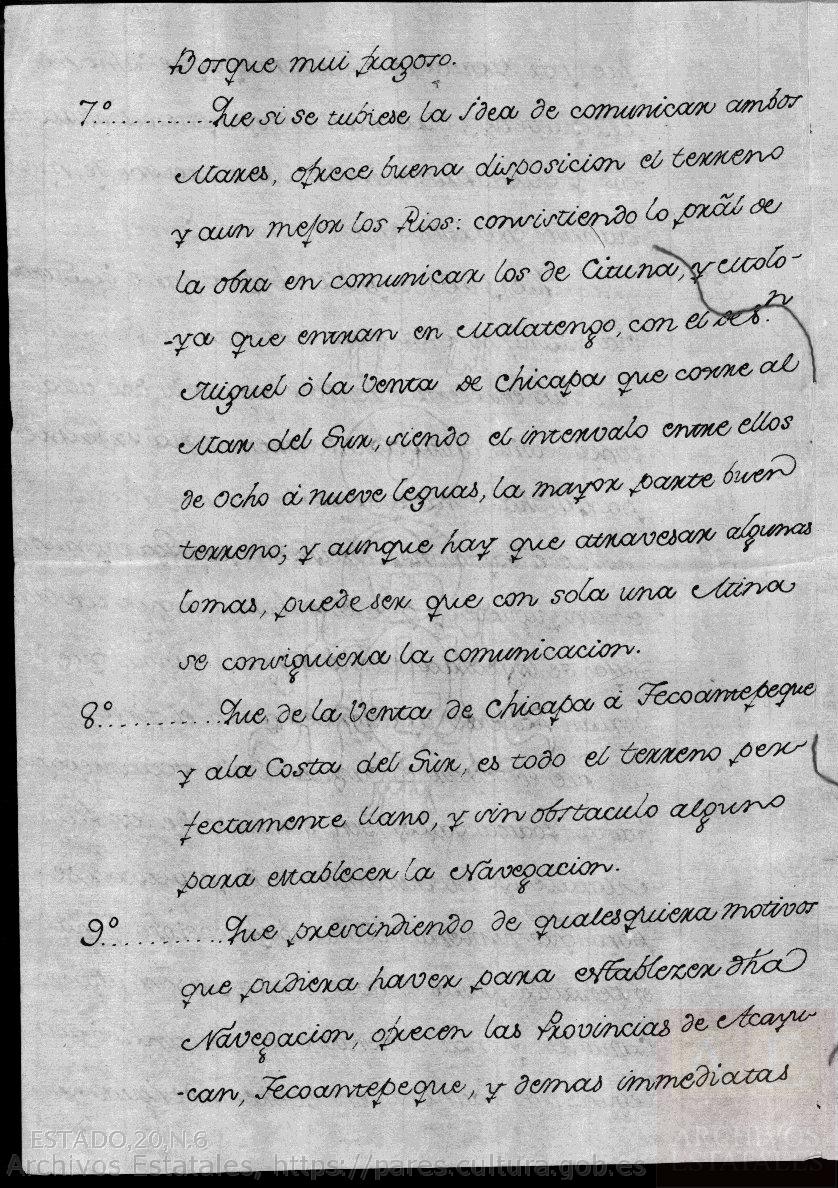 Bosque mui fragoso.
7.º............Que si se tubiese la Idea de comunicar ambos
Mares, ofrece buena disposicion el terreno
y aun mejor los Rios: consistiendo lo prãl de
la obra en comunicar los de Cituna, y Molo-
-ya que entran en Malatengo, con el de S.n
Miguel ò la Venta de Chicapa que corre al
Mar del Sur, siendo el intervalo entre ellos
de ocho á nueve leguas, la mayor parte buen
terreno; y aunque hay que atravesar algunas
lomas, puede ser que con sola una Mina
se consiguiera la comunicacion.
8.º............Que de la Venta de Chicapa á Tecoantepeque
y ala Costa del Sur, es todo el terreno per-
fectamente llano, y sin obstaculo alguno
para establecer la Navegacion.
9.º............Que prescindiendo de qualesquiera motivos
que pudiera haver para establezer dhã
Navegacion, ofrecen las Provincias de Acayu-
-can, Tecoantepeque, y demas immediatas
ESTADO,20,N.6
Archivos Estatales, https://pares.cultura.gob.es
ARCHIVOS
ESTATALES